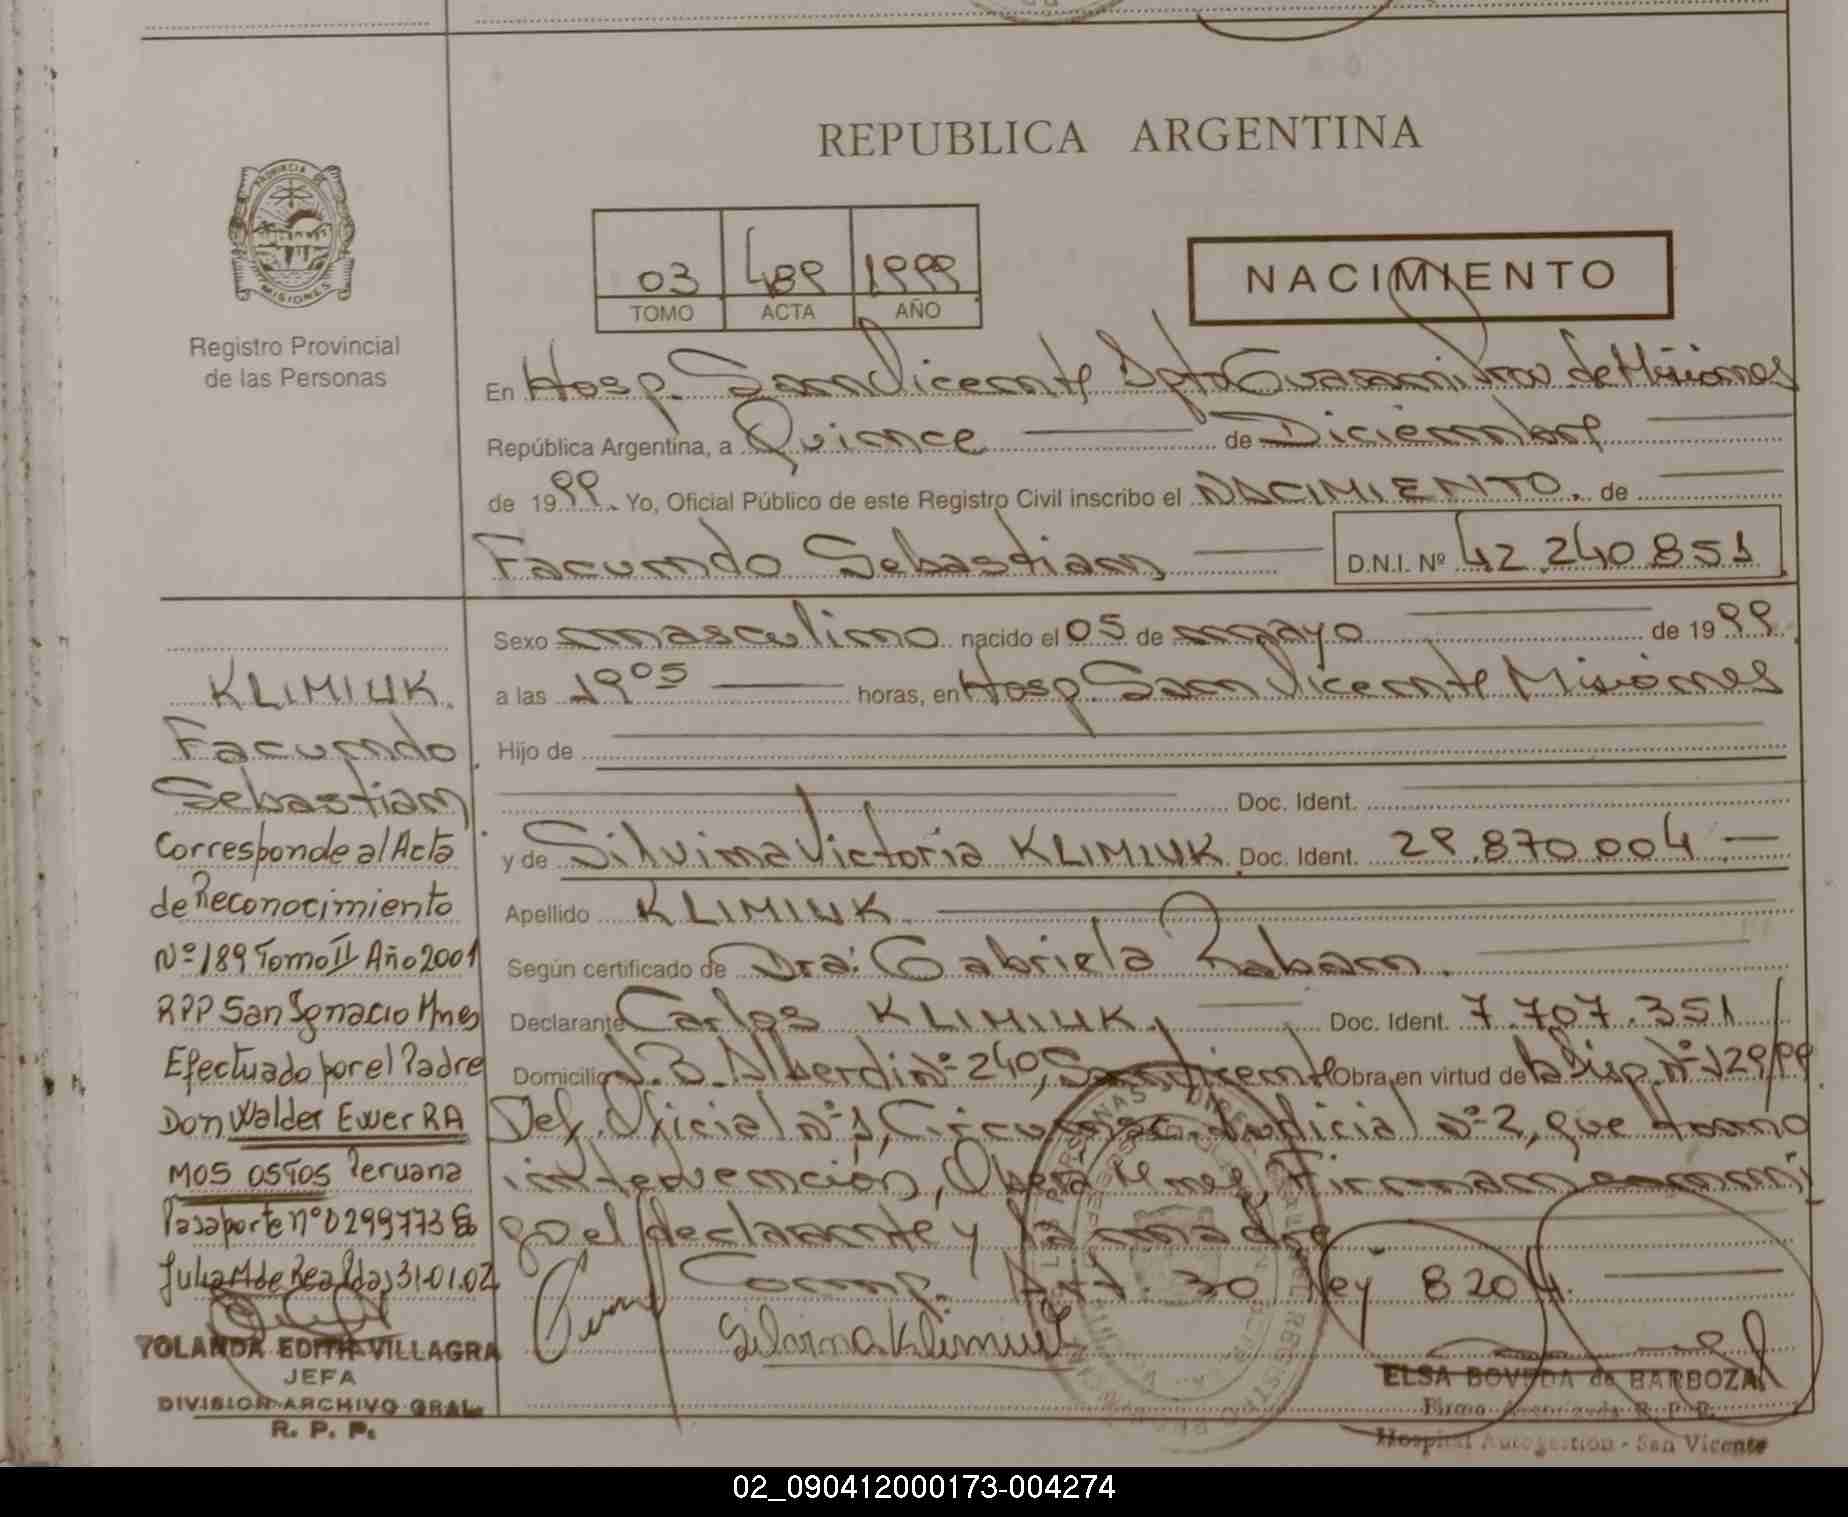 REPUBLICA ARGENTINA
PROVINCIA DE
MISIONES
Registro Provincial
de las Personas
03 489 1999
TOMO ACTA AÑO
NACIMIENTO
En Hosp. San Vicente Dpto Guaraní Prov. de Misiones
República Argentina, a Quince de Diciembre
de 1999. Yo, Oficial Público de este Registro Civil inscribo el NACIMIENTO. de
Facundo Sebastian D.N.I. Nº 42.240.851
Sexo masculino nacido el 05 de mayo de 1999.
a las 19 05 horas, en Hosp. San Vicente Misiones
Hijo de
Doc. Ident.
y de Silvina Victoria KLIMIUK Doc. Ident. 29.870.004
Apellido KLIMIUK
Según certificado de Dra: Gabriela Raban.
Declarante Carlos KLIMIUK, Doc. Ident. 7.707.351
Domicilio J.B. Alberdi nº 240, San Vicente Obra en virtud de la Disp. Nº 129/99
Def. Oficial nº 1, Circunsc. Judicial nº 2, que tomo
intervencion, Oberá Mnes, Firman conmi
go el declarante y la madre
Comp. Art. 30 ley 8204.
Silvina Klimiuk
ELSA BOVEDA de BARBOZA
Firma Autorizada R. P. P.
Hospital Autogestion - San Vicente
KLIMIUK.
Facundo
Sebastian
Corresponde al Acta
de Reconocimiento
Nº 189 Tomo II Año 2001
RPP San Ignacio Mnes
Efectuado por el Padre
Don Walder Ewer RA
MOS OSTOS Peruana
Pasaporte nº 0299773
Julia M de Rea 31-01-02
YOLANDA EDITH VILLAGRA
JEFA
DIVISION ARCHIVO GRAL.
R. P. P.
02_090412000173-004274